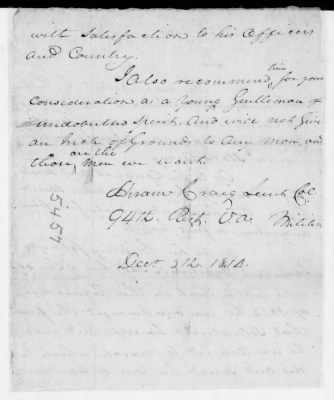 with Satisfaction to his Officers
and Country.
I also recommend him for your
consideration as a young Gentleman of
undoubted Spirit. And will not Give
an Inch of Grounds to Any Man, and
those are the Men we want.
Hiram Craig Leut Col
94th Regt. Va. Militia
Decr 5th 1814.
5457